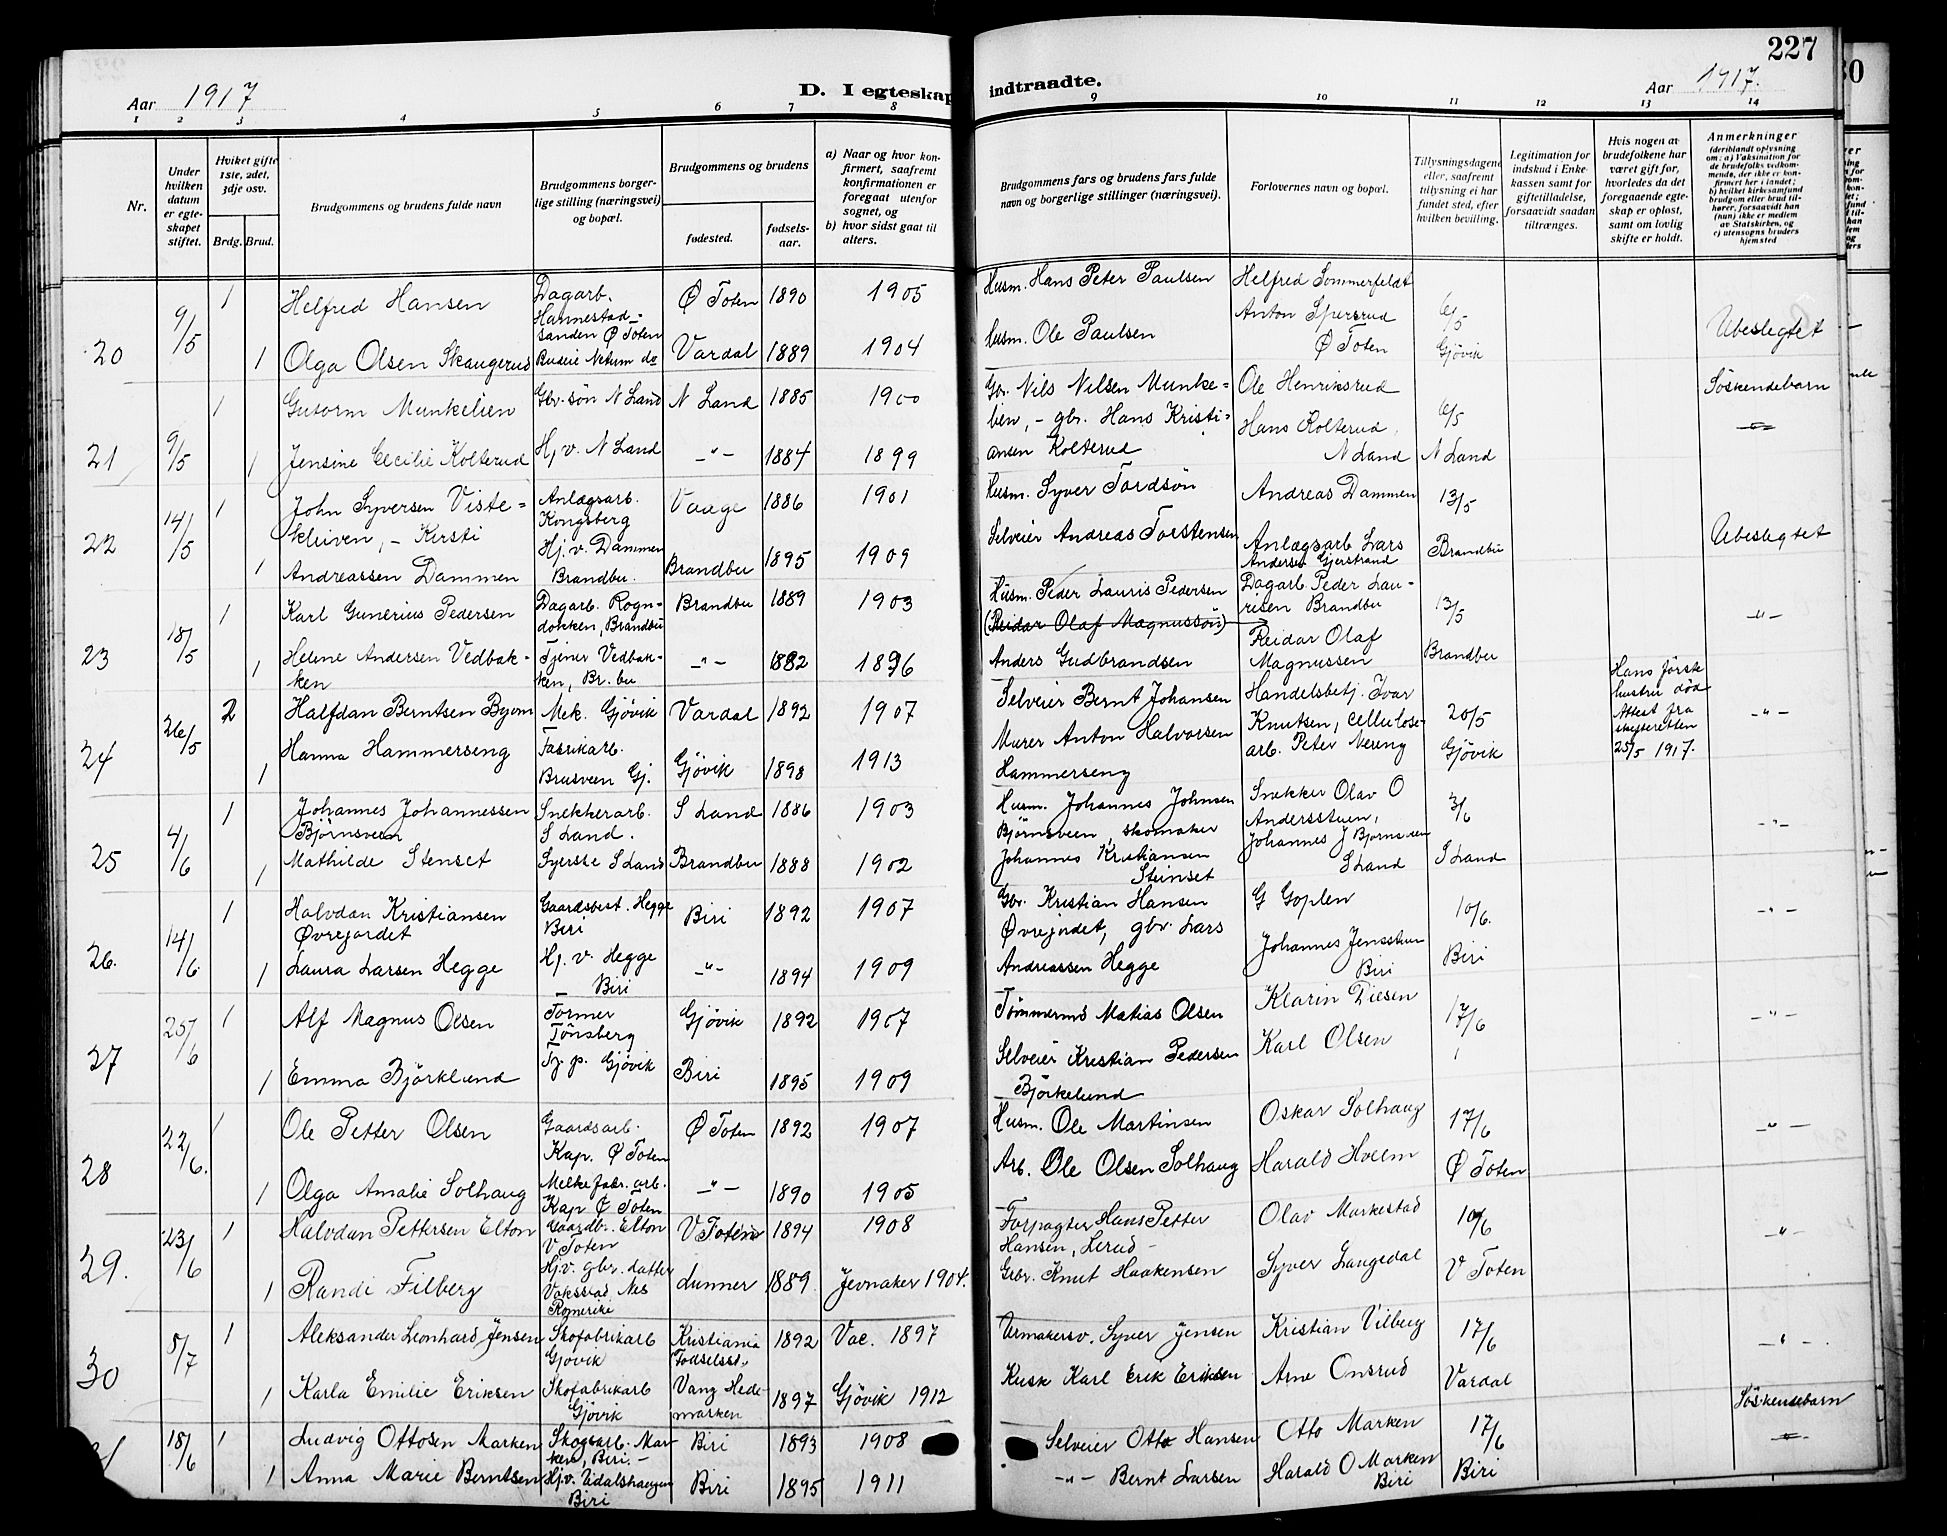 227
Aar 1917
D. I egteskap indtraadte.
Aar 1917.
1 2 3 4 5 6 7 8 9 10 11 12 13 14
Nr.
Under hvilken datum er egteskapet stiftet.
Hvilket gifte 1ste, 2det, 3dje osv.
Brdg. Brud.
Brudgommens og brudens fulde navn
Brudgommens borgerlige stilling (næringsvei) og bopæl.
Brudgommens og brudens
fødested.
fødselsaar.
a) Naar og hvor konfirmert, saafremt konfirmationen er foregaat utenfor sognet, og
b) hvor sidst gaat til alters.
Brudgommens fars og brudens fars fulde navn og borgerlige stillinger (næringsvei).
Forlovernes navn og bopæl.
Tillysningsdagene eller, saafremt tillysning ei har fundet sted, efter hvilken bevilling.
Legitimation for indskud i Enkekassen samt for giftetilladelse, forsaavidt saadan tiltrænges.
Hvis nogen av brudefolkene har været gift før, hvorledes da det foregaaende egteskap er opløst, samt om lovlig skifte er holdt.
Anmerkninger (deriblandt oplysning om: a) Vaksination for de brudefolks vedkommende, der ikke er konfirmert her i landet; b) hvilket kirkesamfund brudgom eller brud tilhører, forsaavidt han (hun) ikke er medlem av Statskirken, og c) utensogns bruders hjemsted
20 9/5 1 Helfred Hansen Dagarb. Hannestadsanden Ø Toten Ø Toten 1890 1905 Husm. Hans Peter Paulsen Helfred Sommerfeldt 6/5
1 Olga Olsen Skaugerud Vardal 1889 1904 Husm. Ole Paulsen Anton Spersrud Ø Toten Gjøvik Ubeslegtet
21 9/5 1 Gutorm Munkelien Gbr. søn N Land N Land 1885 1900 Gbr. Nils Nilsen Munkelien, - gbr. Hans Kristiansen Kolterud Ole Henriksrud 6/5 Söskendebarn
1 Jensine Cecilie Kolterud Hj v. N Land -"- 1884 1899 Hans Kolterud N Land N Land
22 14/5 1 John Syversen Vistekleiven, - Kersti Anlægsarb. Kongsberg Vaage 1886 1901 Husm. Syver Tordsön Andreas Dammen 13/5
1 Andreassen Dammen Hj. v. Dammen Brandbu. Brandbu 1895 1909 Selveier Andreas Torstensen Anlægsarb Lars Andersen Gjerstrand Brandbu Ubeslegtet
23 18/5 1 Karl Gunerius Pedersen Dagarb. Rogndokken, Brandbu Brandbu 1889 1903 Husm. Peder Lauris Pedersen (Reidar Olaf Magnussön) Dagarb. Peder Laurisen Brandbu 13/5 -"-
1 Helene Andersen Vedbakken Tjener Vedbakken, Br. bu -"- 1882 1896 Anders Gudbrandsen Reidar Olaf Magnussen Brandbu
24 26/5 2 Halfdan Berntsen Byom Mek. Gjøvik Vardal 1892 1907 Selveier Bernt Johansen Handelsbetj. Ivar Knutsen, Cellulosearb. Peter Nereng 20/5 Hans första hustru död Attest fra skifteretten 25/5 1917. -"-
1 Hanna Hammerseng Fabrikarb. Brusveen Gj. Gjövik 1898 1913 Murer Anton Halvorsen Hammerseng Gjövik
25 4/6 1 Johannes Johannessen Björnsveen Snekkerarb. S Land. S Land 1886 1903 Husm. Johannes Johnsen Björnsveen, skomaker Snekker Olav O Andersstuen, 3/6 -"-
1 Mathilde Stenset Syerske S Land Brandbu 1888 1902 Johannes Kristiansen Steinset Johannes J Bjørnsveen S Land S Land
26. 14/6 1 Halvdan Kristiansen Øvrejordet Gaardsbest. Hegge Biri Biri 1892 1907 Gbr. Kristian Hansen Øvrejordet, gbr. Lars G Goplen 10/6. -"-
1 Laura Larsen Hegge Hj. v. Hegge Biri -"- 1894 1909 Andreassen Hegge Johannes Jensstuen Biri Biri
27 25/6 1 Alf Magnus Olsen Former Tönsberg Gjövik 1892 1907 Tömmermd Matias Olsen Klarin Diesen 17/6 -"-
1 Emma Björklund Tj. p. Gjövik Biri 1895 1909 Selveier Kristian Pedersen Björkelund Karl Olsen
28 22/6. 1 Ole Petter Olsen Gaardsarb. Kap. Ø Toten Ø Toten 1892 1907 Husm. Ole Martinsen Oskar Solhaug 17/6 -"-
1 Olga Amalie Solhaug Melkefabr. arb. Kap Ø Toten -"- 1890 1905 Arb. Ole Olsen Solhaug Harald Hveem Ø Toten
29. 23/6 1 Halvdan Pettersen Elton Gaardbr. Elton V Toten V Toten 1894 1908 Forpagter Hans Petter Hansen, Lerud - Olav Markestad 10/6 -"-
1 Randi Filberg Hj.v. gbr. datter Vakstad Nes Romerike Lunner 1889 Jevnaker 1904. Gbr. Knut Haakensen Syver Laugsdal V Toten
30 5/7 1 Aleksander Leonhard Jensen Skofabrikarb Gjövik Kristiania Fødselsst. 1892 Vac. 1897 Urmakersv. Syver Jensen Kristian Vilberg 17/6 -"-
1 Karla Emilie Eriksen Skofabrikarb Gjövik Vang Hedemarken 1897 Gjövik 1912 Kusk Karl Erik Eriksen Arne Onsrud Vardal
18/6 1 Ludvig Ottosen Marken Skogsarb. Marken, Biri. - Biri 1893 1908 Selveier Otto Hansen Otto Marken 17/6 Söskendebarn
1 Anna Marie Berntsen Hj.v. Biri Biri 1895 1911 -"- Bernt Larsen Harald O Marken Biri Biri